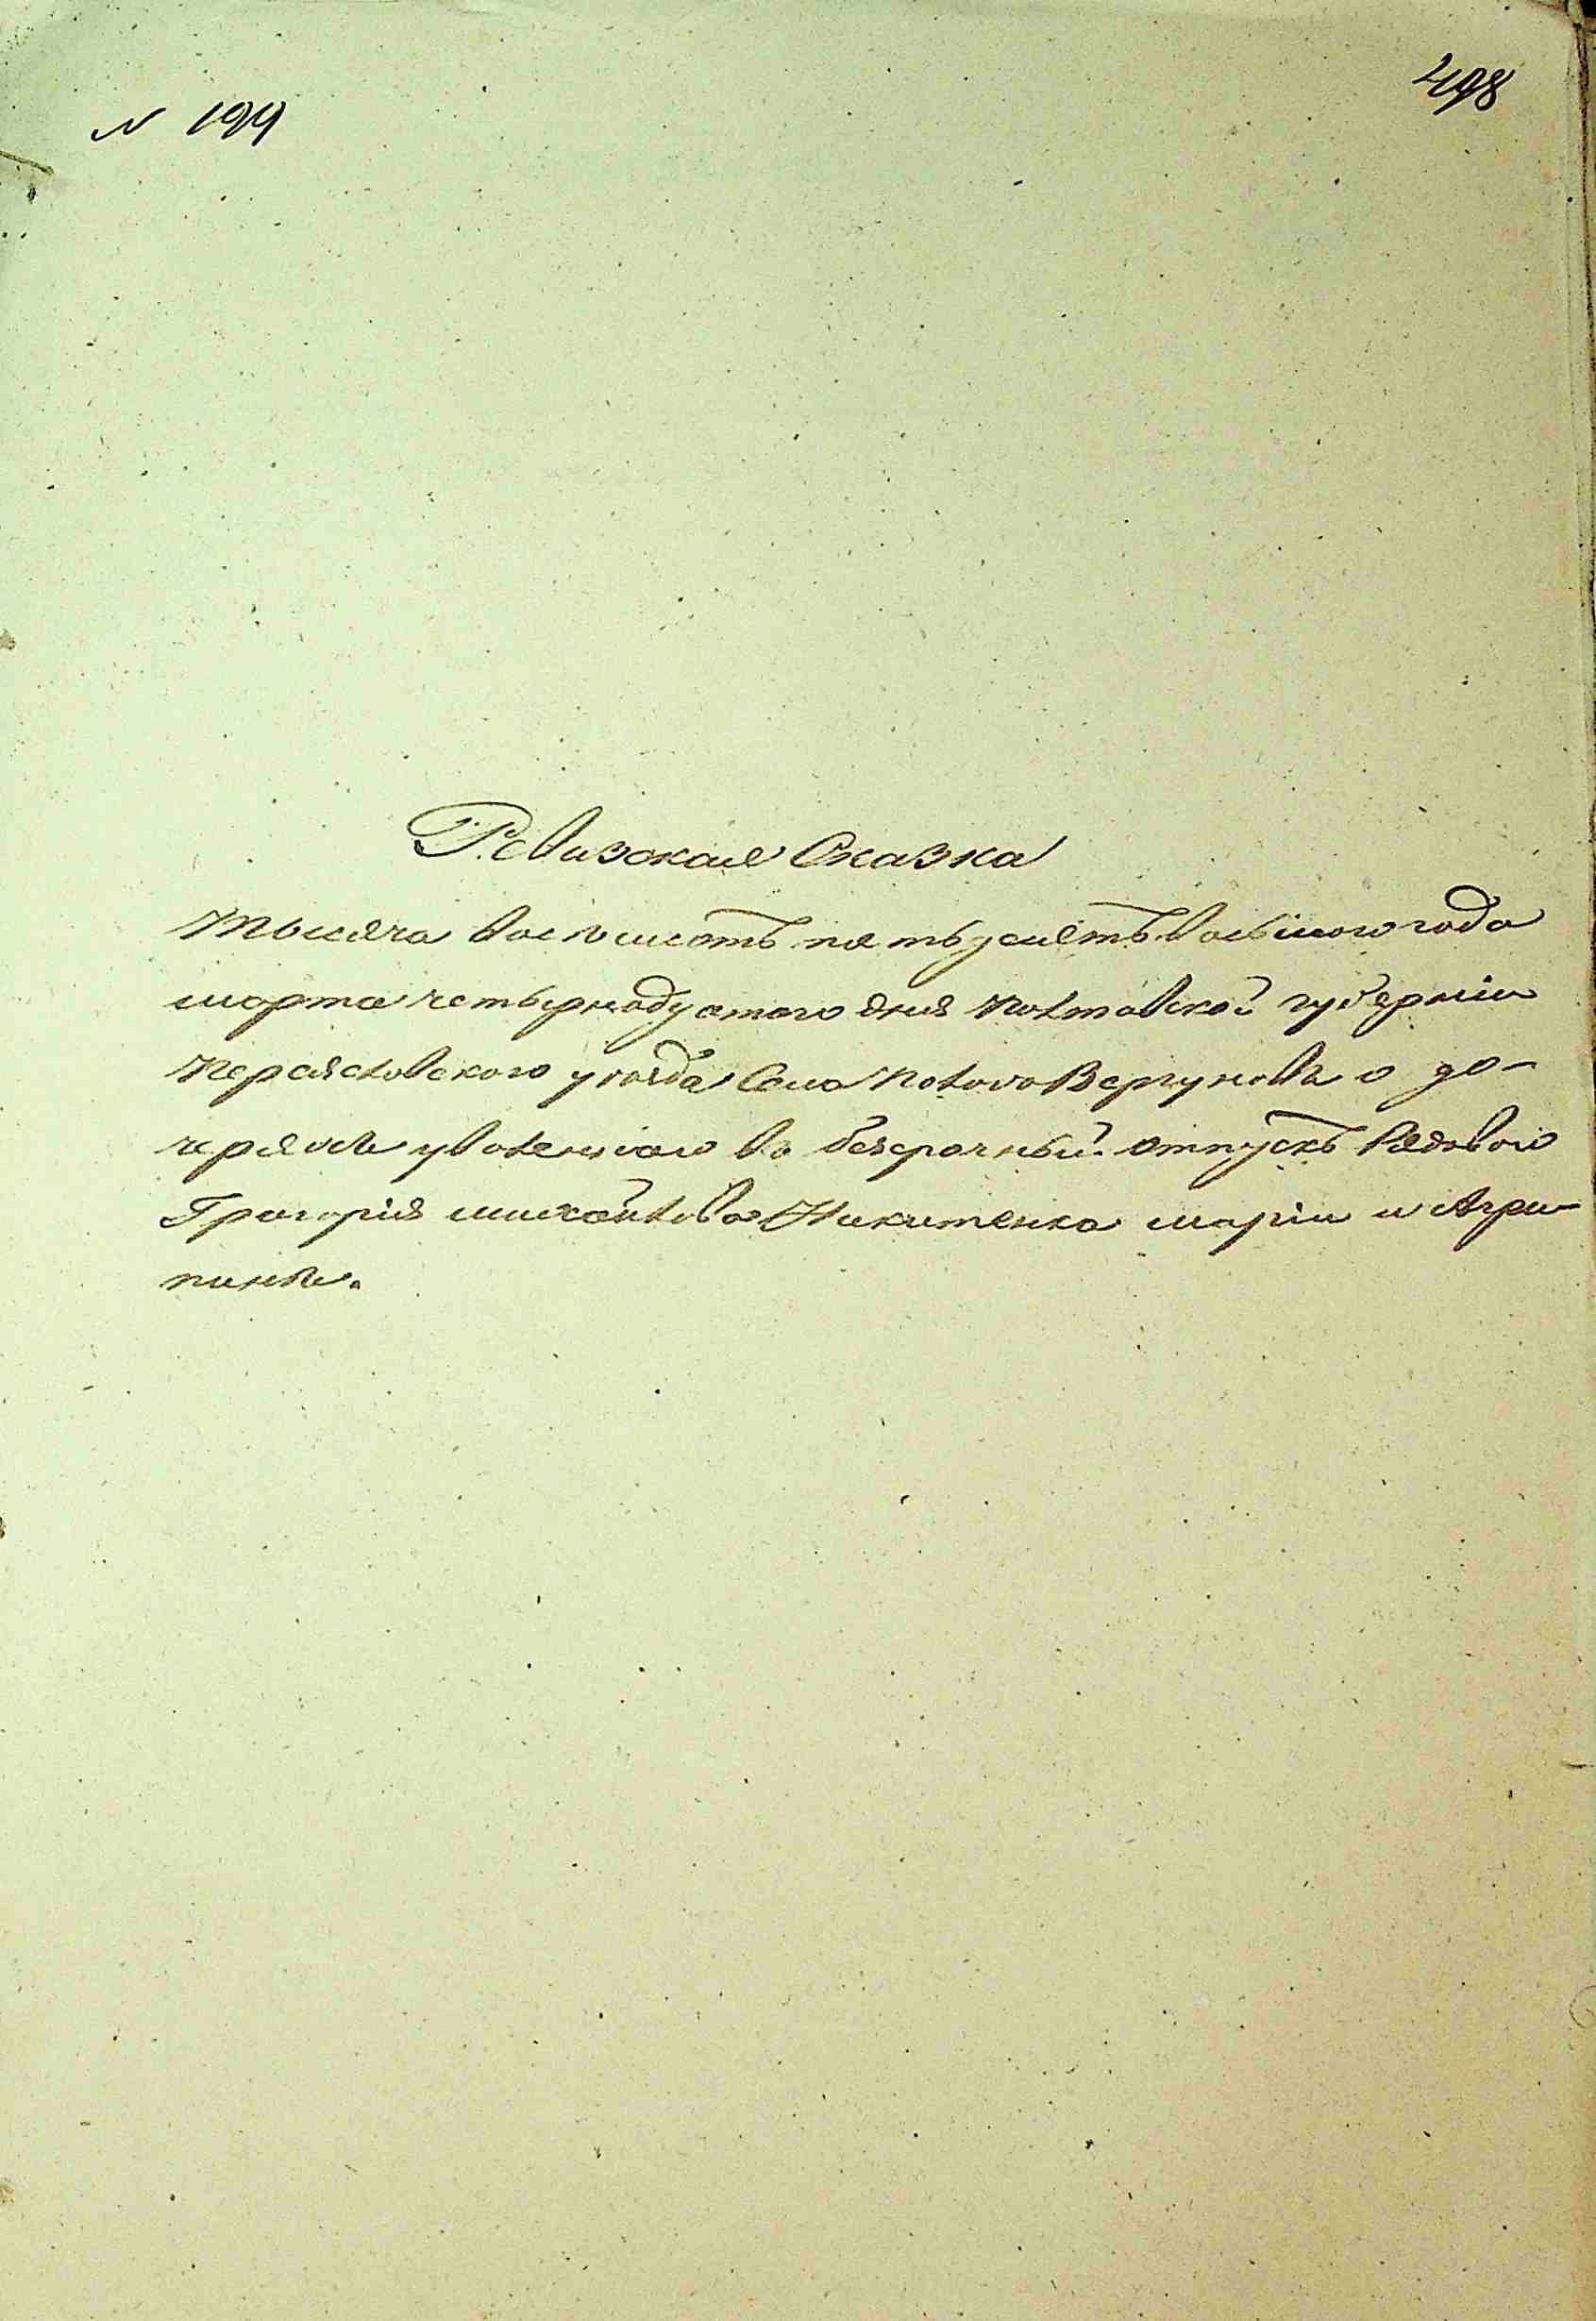 N 199
498
Ревизская Сказка
Тысяча восемьсотъ пятьдесятъ восьмого года
марта четырнадцатого дня Полтавской губерніи
Переяславского уезда Села
череяхъ уволеннаго въ безсрочный отпускъ Рядового
Григорія Михайлова Никитенка маріи и Агри-
пини.